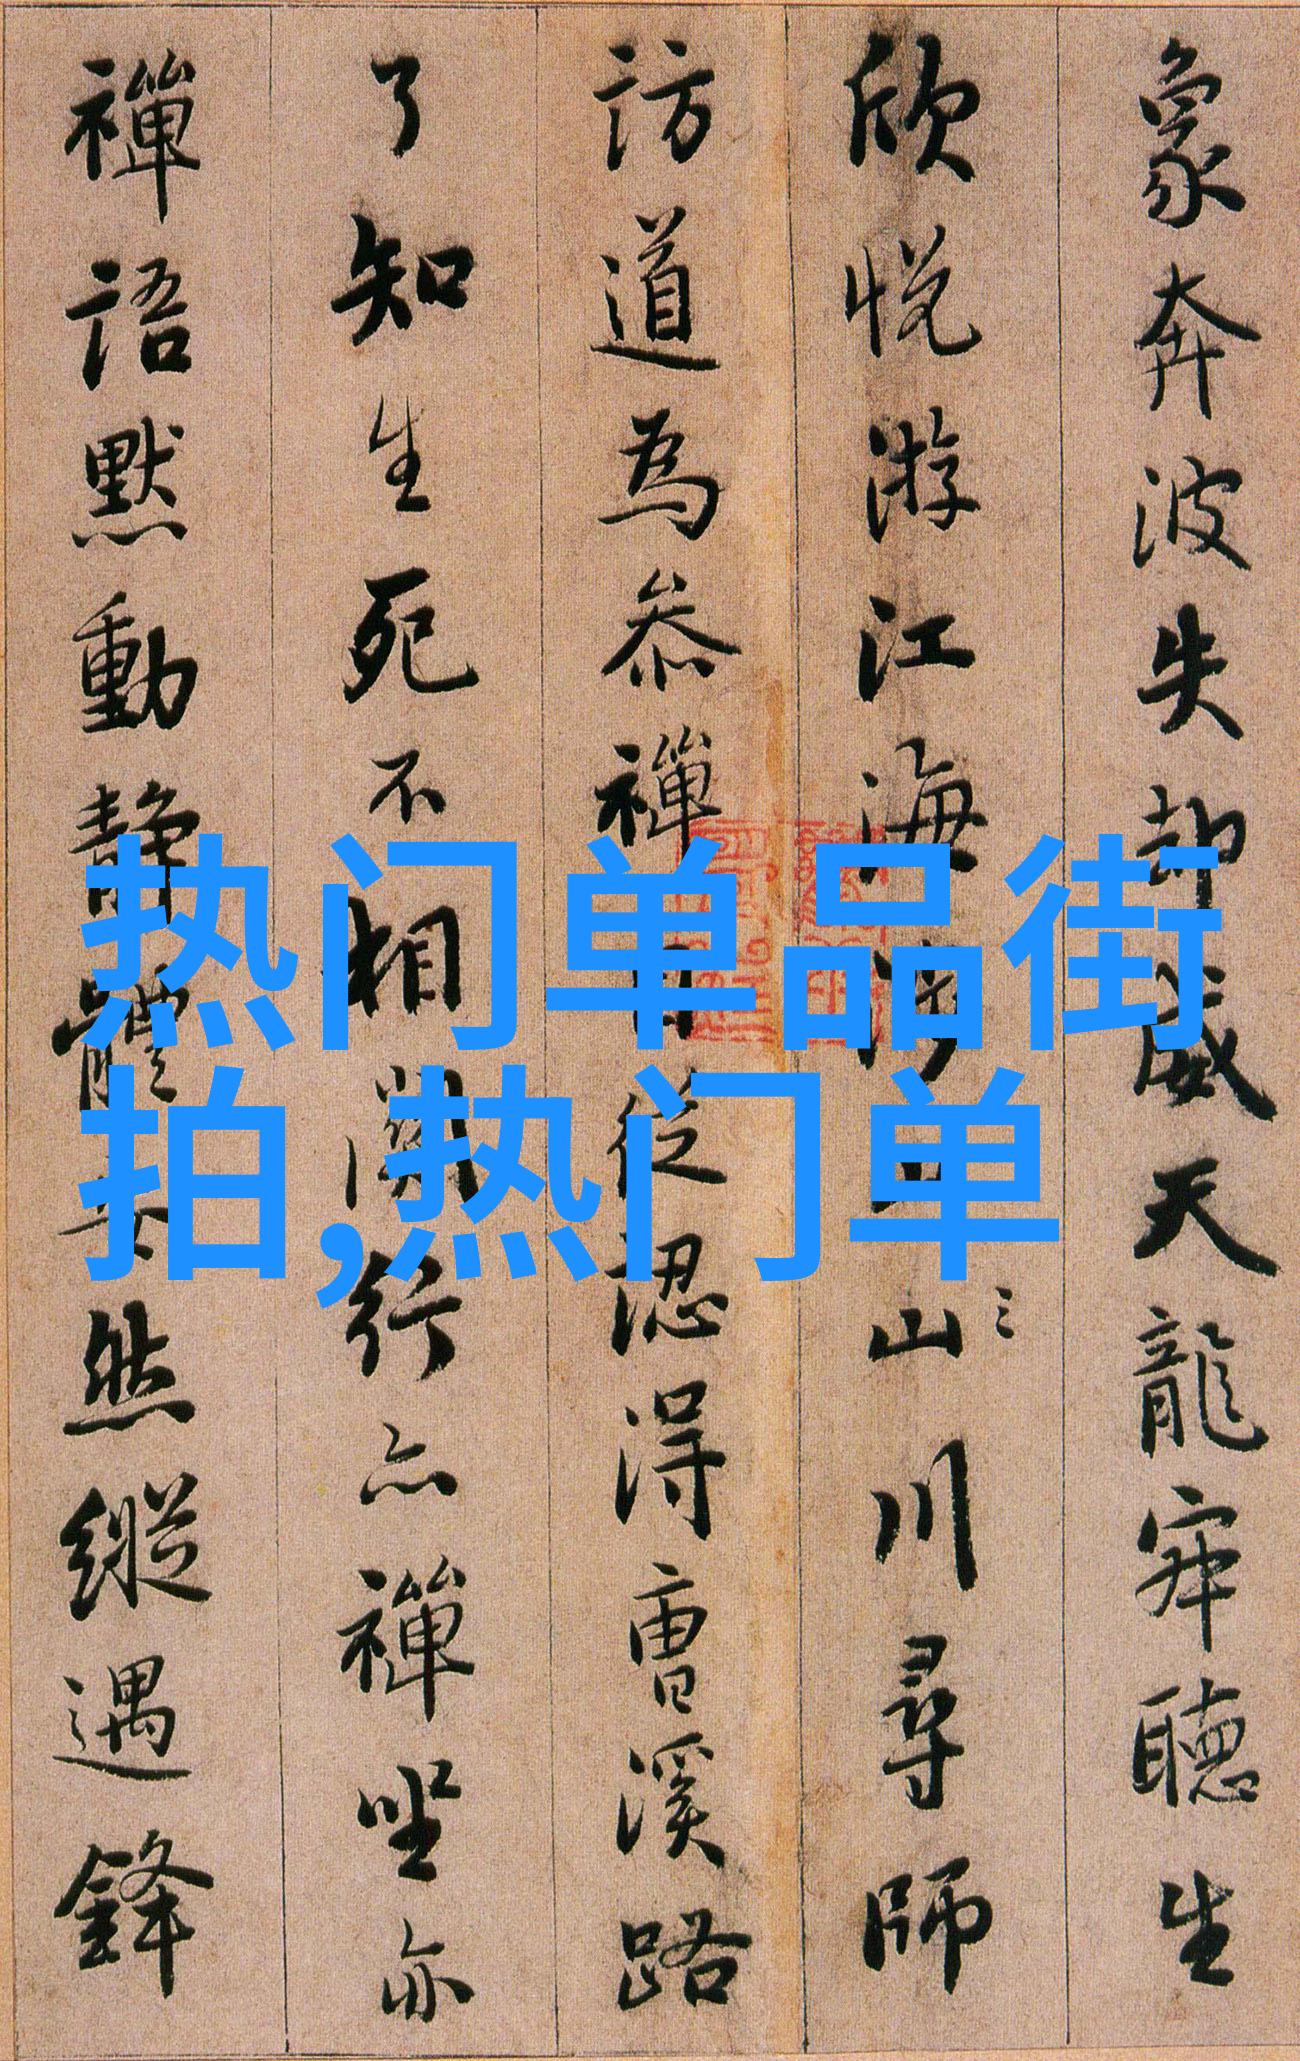 象奔波失却威天龍寂聽生
欣悦游江海涉山川尋師
訪道為叅禪自從認得曹溪路
了知生死不相關行亦禪坐亦
禪語默動靜體安然縱遇鋒
热门单品街
拍,热门单